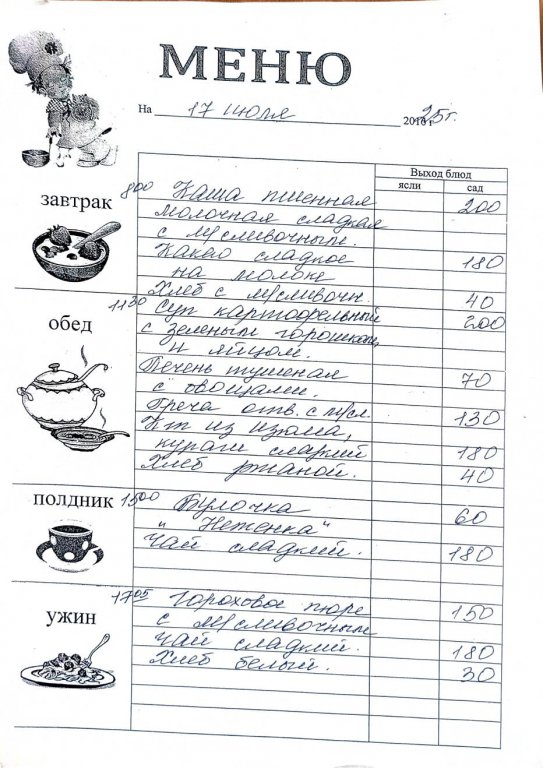 МЕНЮ
На 17 июля 2025 г.
Выход блюд
ясли сад
завтрак 8 00 Каша пшенная 200
молочная сладкая
с м/сливочным.
Какао сладкое 180
на молоке
Хлеб с м/сливочн. 40
обед 11 30 Суп картофельный 200
с зеленым горошком,
и яйцом.
Печень тушеная 70
с овощами.
Греча отв. с м/сл. 130
К-т из изюма,
кураги сладкий 180
Хлеб ржаной. 40
полдник 15 00 Булочка 60
"Неженка"
Чай сладкий. 180
ужин 17 05 Гороховое пюре 150
с м/сливочным
Чай сладкий. 180
Хлеб белый. 30